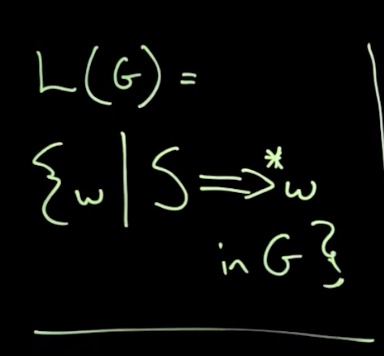 L(G) =
{w | S ⟹* w
in G}